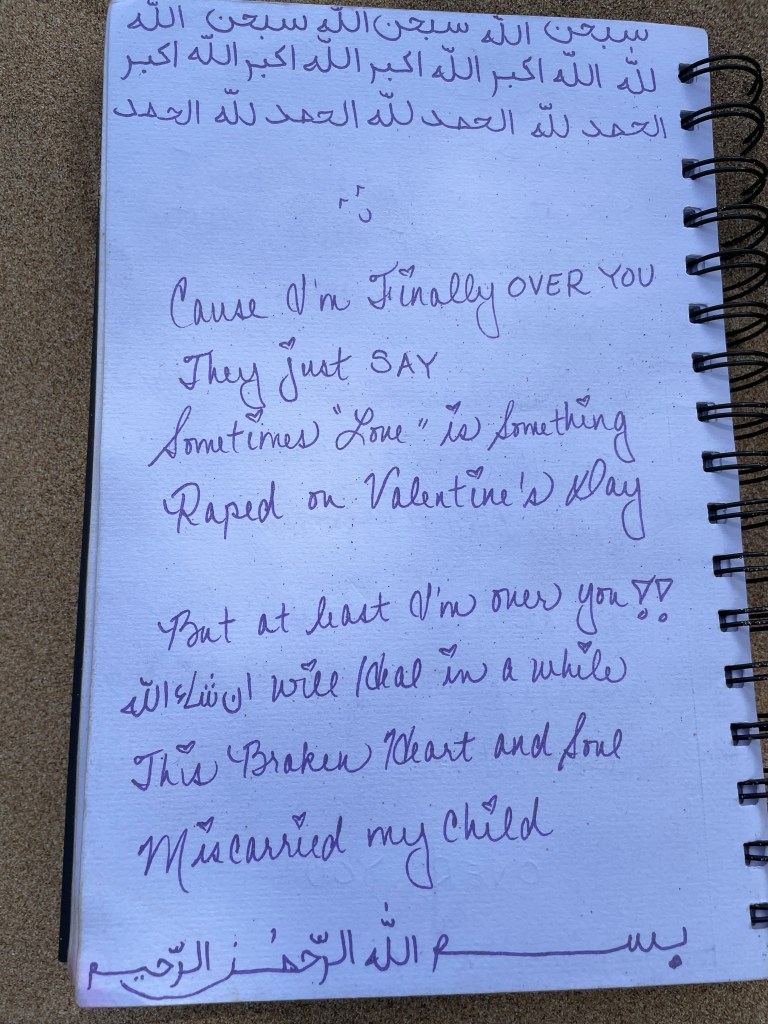 سبحن الله سبحن الله سبحن الله
لله الله اكبر الله اكبر الله اكبر الله اكبر
الحمد لله الحمد لله الحمد لله الحمد
Cause I'm Finally OVER YOU
They just SAY
Sometimes "Love" is Something
Raped on Valentine's Day
But at least I'm over you!!
ان شاء الله will Heal in a while
This Broken Heart and Soul
Miscarried my Child
بســـــم الله الرّحمٰن الرّحيم